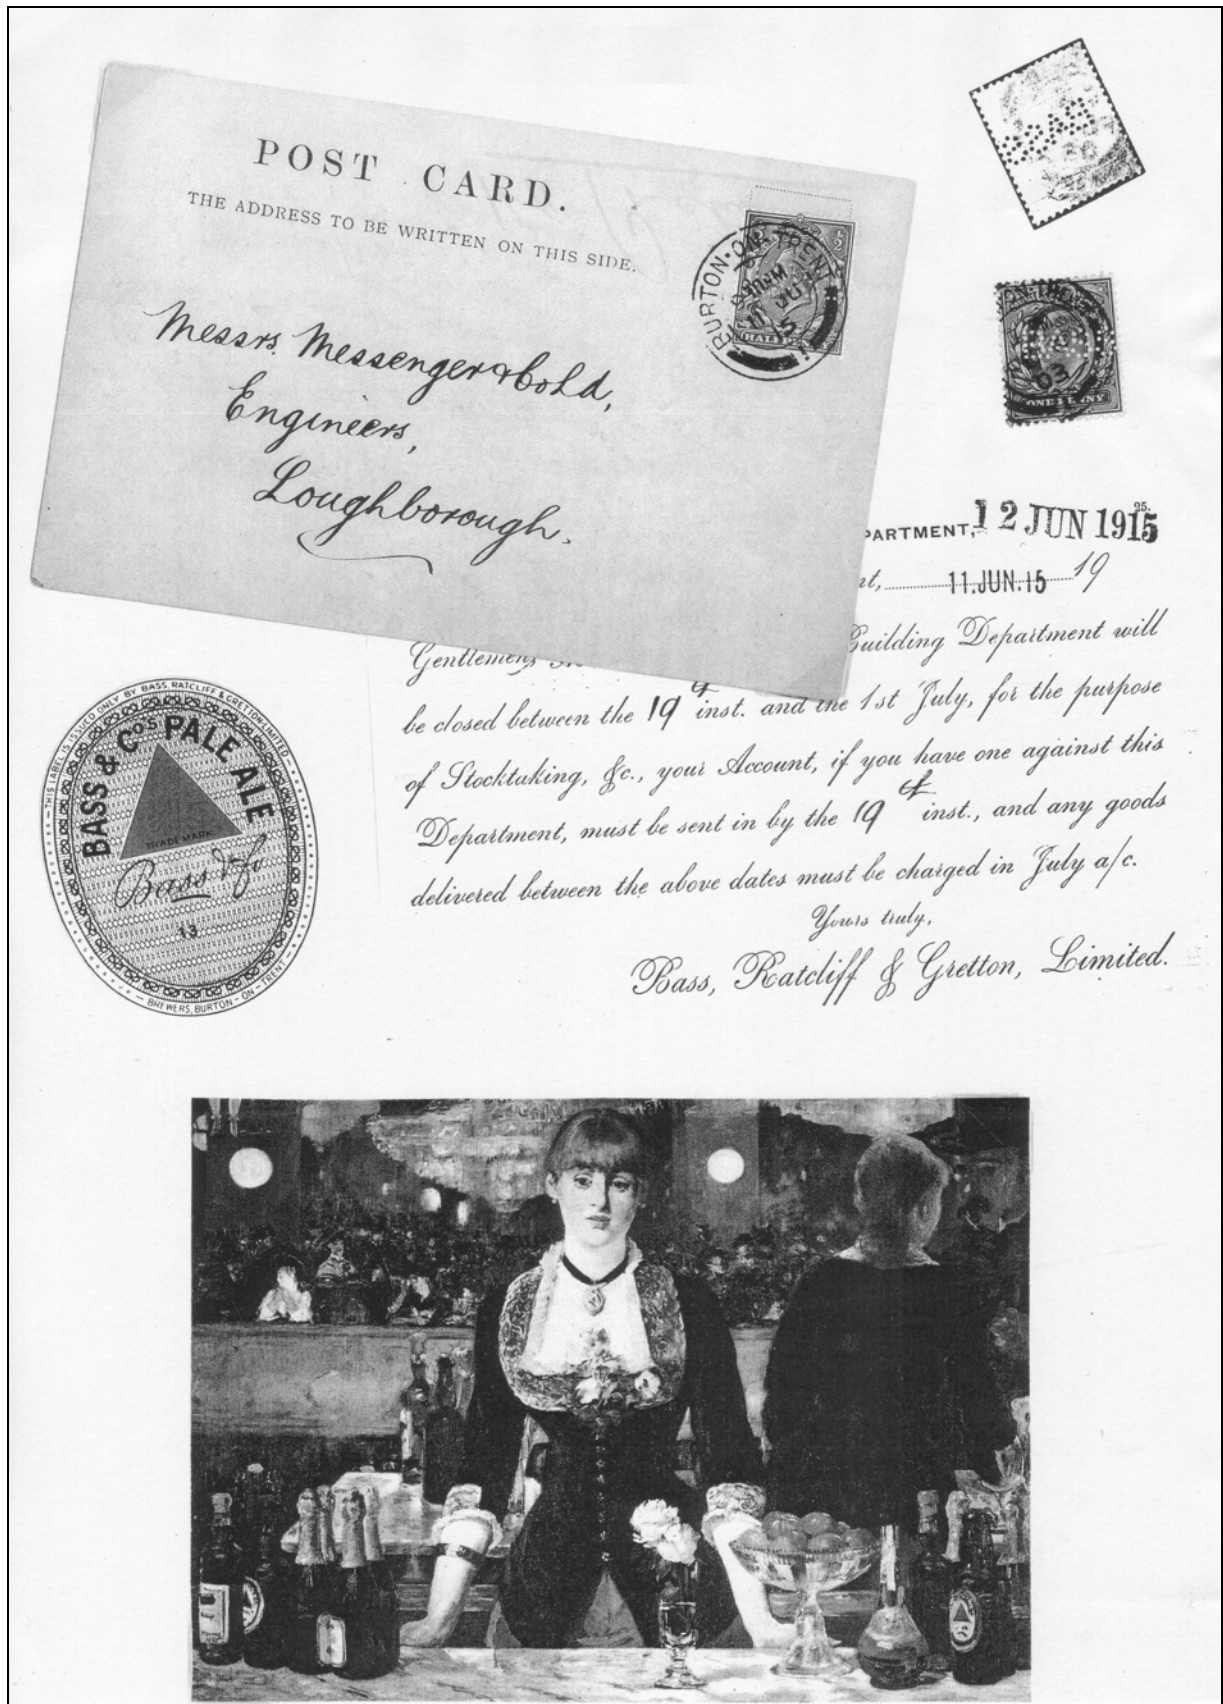 POST CARD.
THE ADDRESS TO BE WRITTEN ON THIS SIDE.
BURTON-ON-TRENT
HALF PENNY
Messrs. Messenger & Cold,
Engineers,
Loughborough.
ONE PENNY
03
PARTMENT, 12 JUN 1915
25.
nt, 11.JUN.15 19
Gentlemen, Building Department will
be closed between the 19 inst. and the 1st July, for the purpose
of Stocktaking, &c., your Account, if you have one against this
Department, must be sent in by the 19 inst., and any goods
delivered between the above dates must be charged in July a/c.
Yours truly,
Bass, Ratcliff & Gretton, Limited.
THIS LABEL IS ISSUED ONLY BY BASS, RATCLIFF & GRETTON LIMITED
BASS & Co's PALE ALE
TRADE MARK
Bass & Co
13
BREWERS, BURTON-ON-TRENT